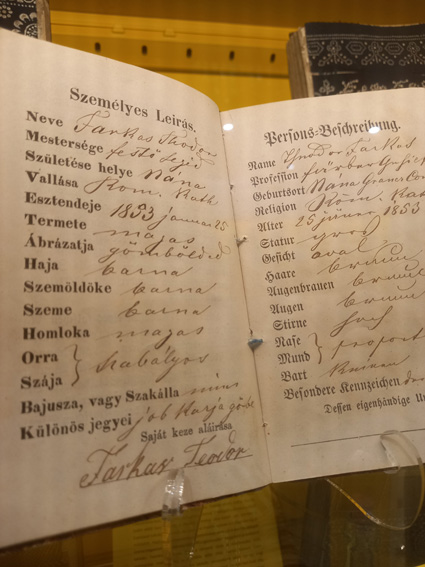 Személyes Leírás.
Neve Farkas Theodor
Mestersége festő legid
Születése helye Nána
Vallása Rom. Kath
Esztendeje 1853 januar 25
Termete magas
Ábrázatja gömbölded
Haja barna
Szemöldöke barna
Szeme barna
Homloka magas
Orra
Szája } szabályos
Bajusza, vagy Szakálla nincs
Különös jegyei job karja görbe
Saját keze aláirása
Farkas Teodor
Persons-Beschreibung.
Name Theodor Farkas
Profession Färber
Geburtsort Nana
Religion Röm. Kath
Alter 25 1853
Statur gros
Gesicht oval
Haare braun
Augenbrauen braun
Augen braun
Stirne hoch
Nase
Mund } proport
Bart
Besondere Kennzeichen
Dessen eigenhändige Un